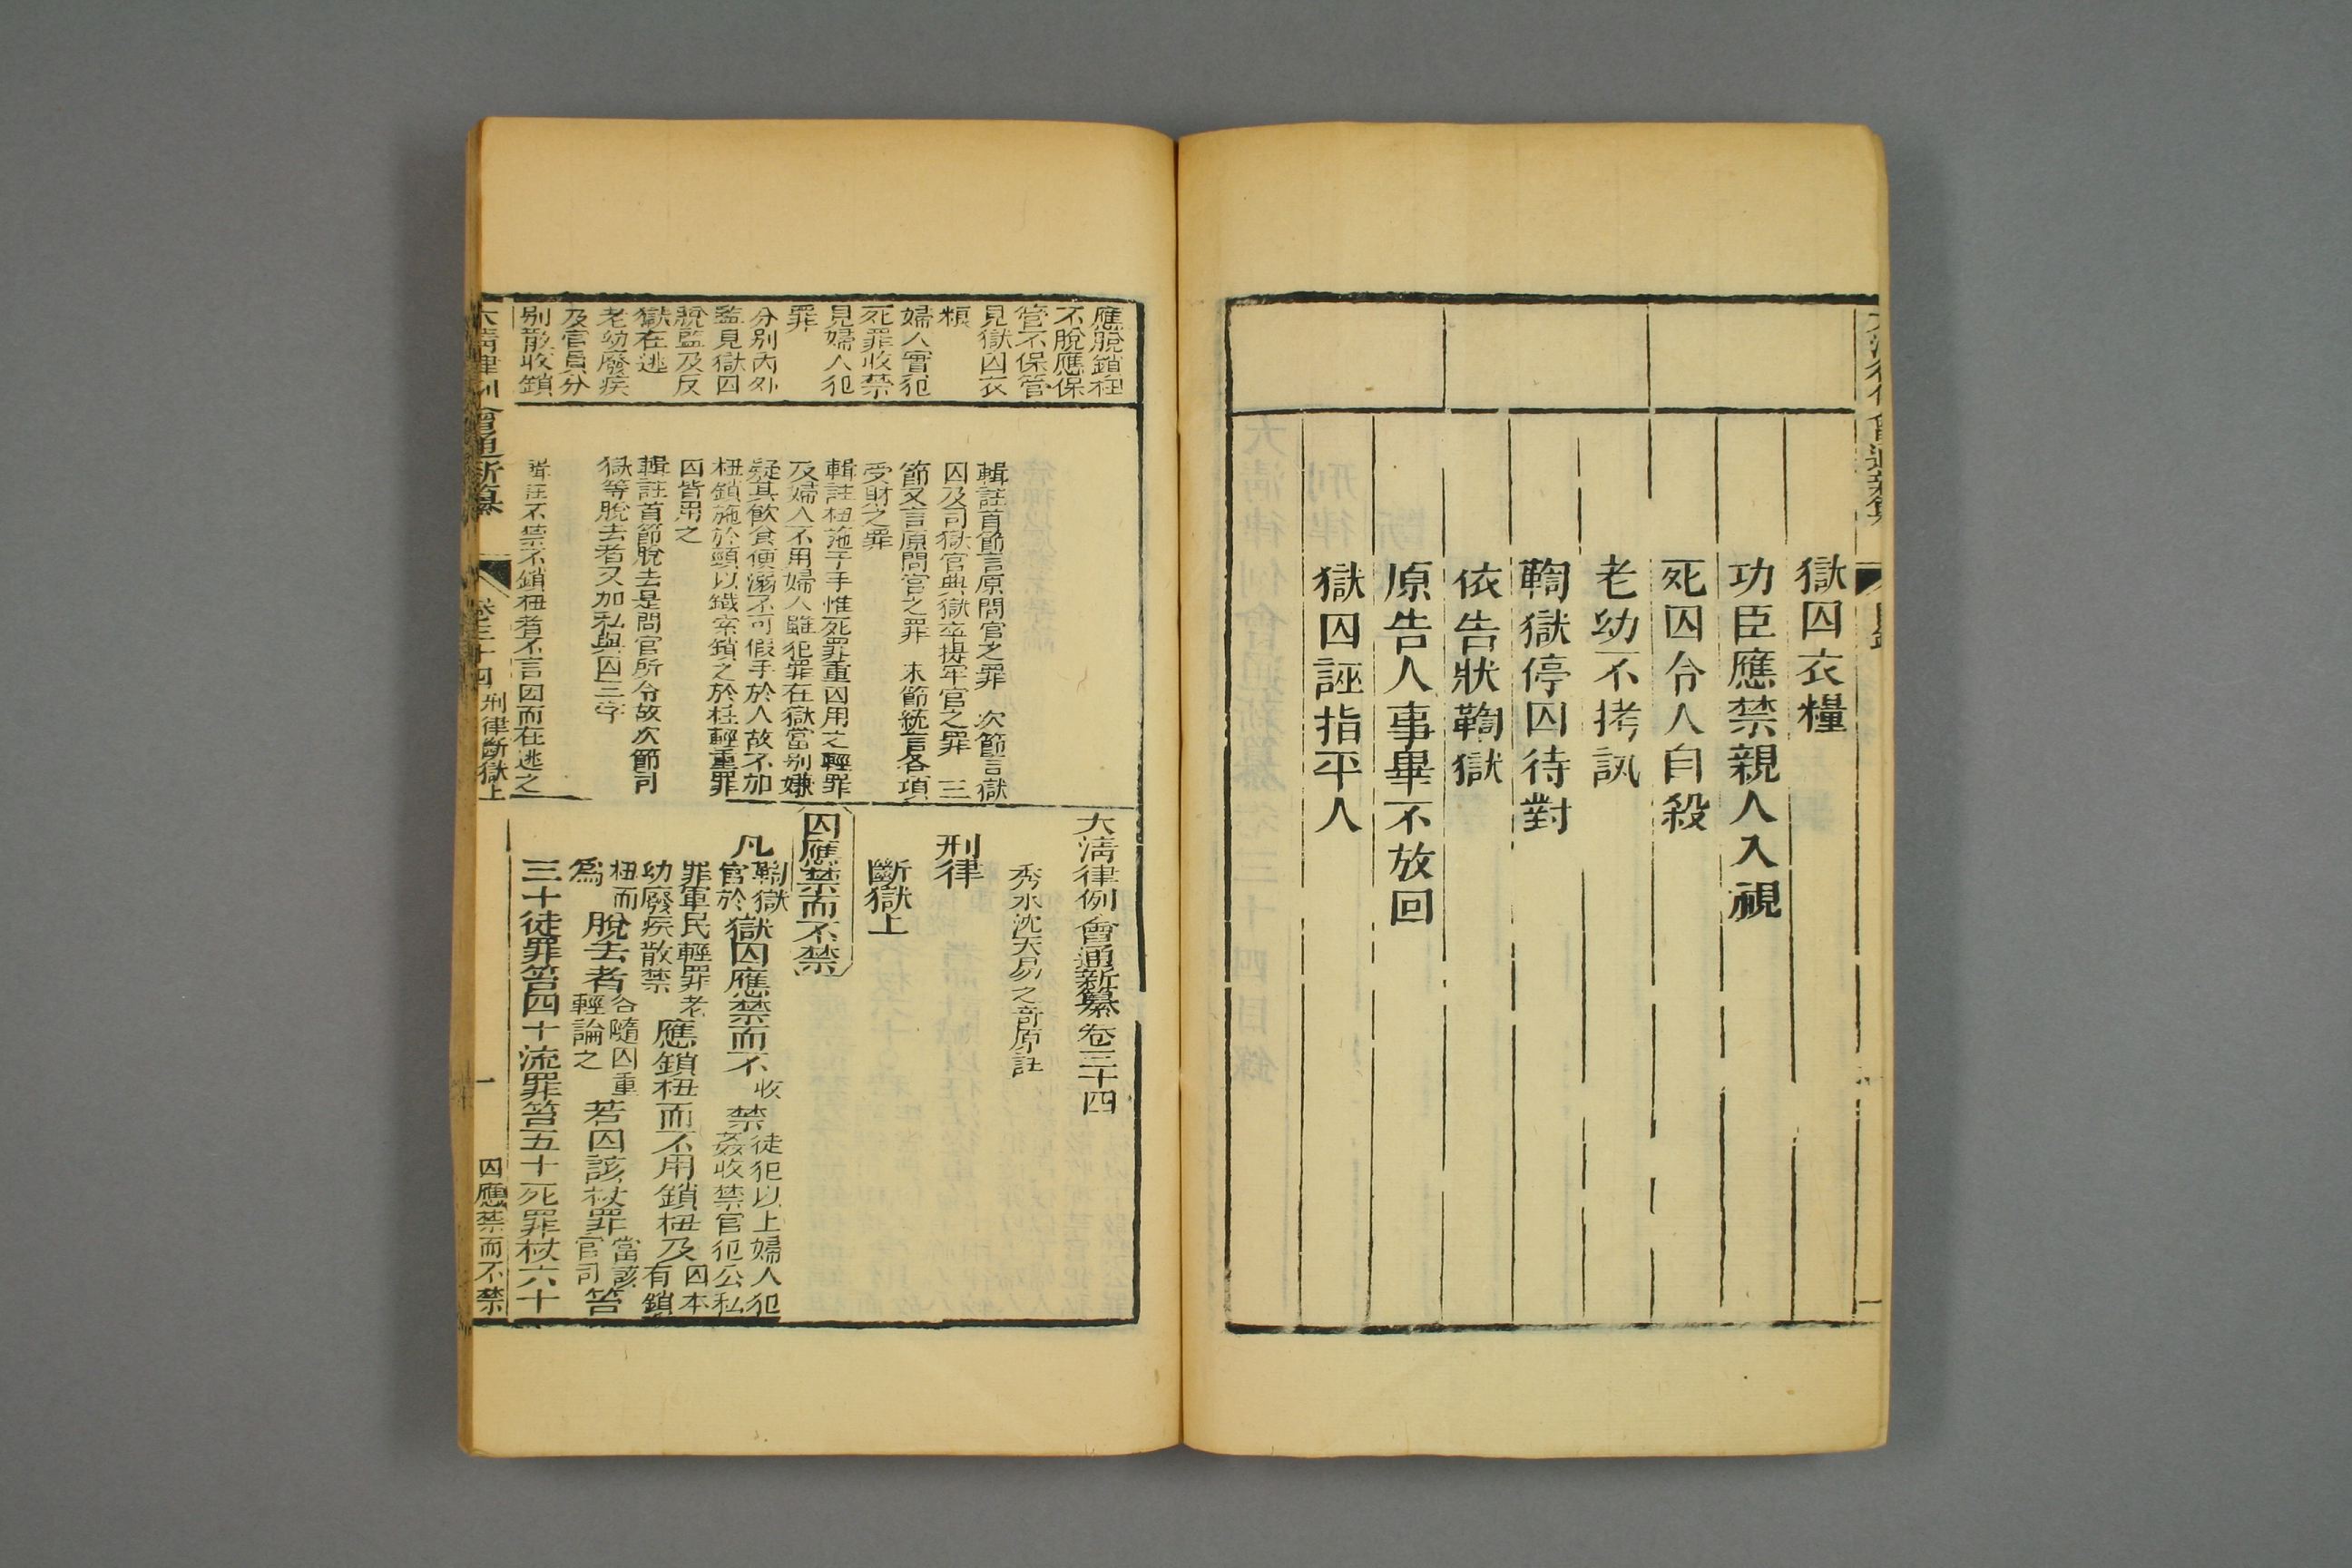 獄囚衣糧
功臣應禁親人入視
死囚令人自殺
老幼不拷訊
鞫獄停囚待對
依告狀鞫獄
原告人事畢不放回
獄囚誣指平人
應脫鎖杻
不脫應保
管不保管
見獄囚衣
糧
婦人實犯
死罪收禁
見婦人犯
罪
分别内外
監見獄囚
脫監及反
獄在逃
老幼廢疾
及官員分
别散收鎖
輯註首節言原問官之罪 次節言獄
囚及司獄官典獄卒提牢官之罪 三
節又言原問官之罪 末節統言各項
受財之罪
輯註杻施于手惟死罪重囚用之輕罪
及婦人不用婦人雖犯罪在獄當别嫌
疑其飲食便溺不可假手於人故不加
杻鎖施於頸以鐵索鎖之於柱輕重罪
囚皆用之
輯註首節脫去是問官所令故次節司
獄等脫去者又加私與囚三字
輯註不禁不鎖杻者不言因而在逃之
大清律例會通新纂卷三十四
秀水沈天易之奇原註
刑律
斷獄上
囚應禁而不禁
凡鞫獄官於獄囚應禁而不收禁徒犯以上婦人犯姦收禁官犯公私
罪軍民輕罪老幼廢疾散禁應鎖杻而不用鎖杻及囚本有鎖
杻而爲脫去者各隨囚重輕論之若囚該杖罪當該官司笞
三十徒罪笞四十流罪笞五十死罪杖六十
大清律例會通新纂
卷三十四
刑律斷獄上
一
囚應禁而不禁